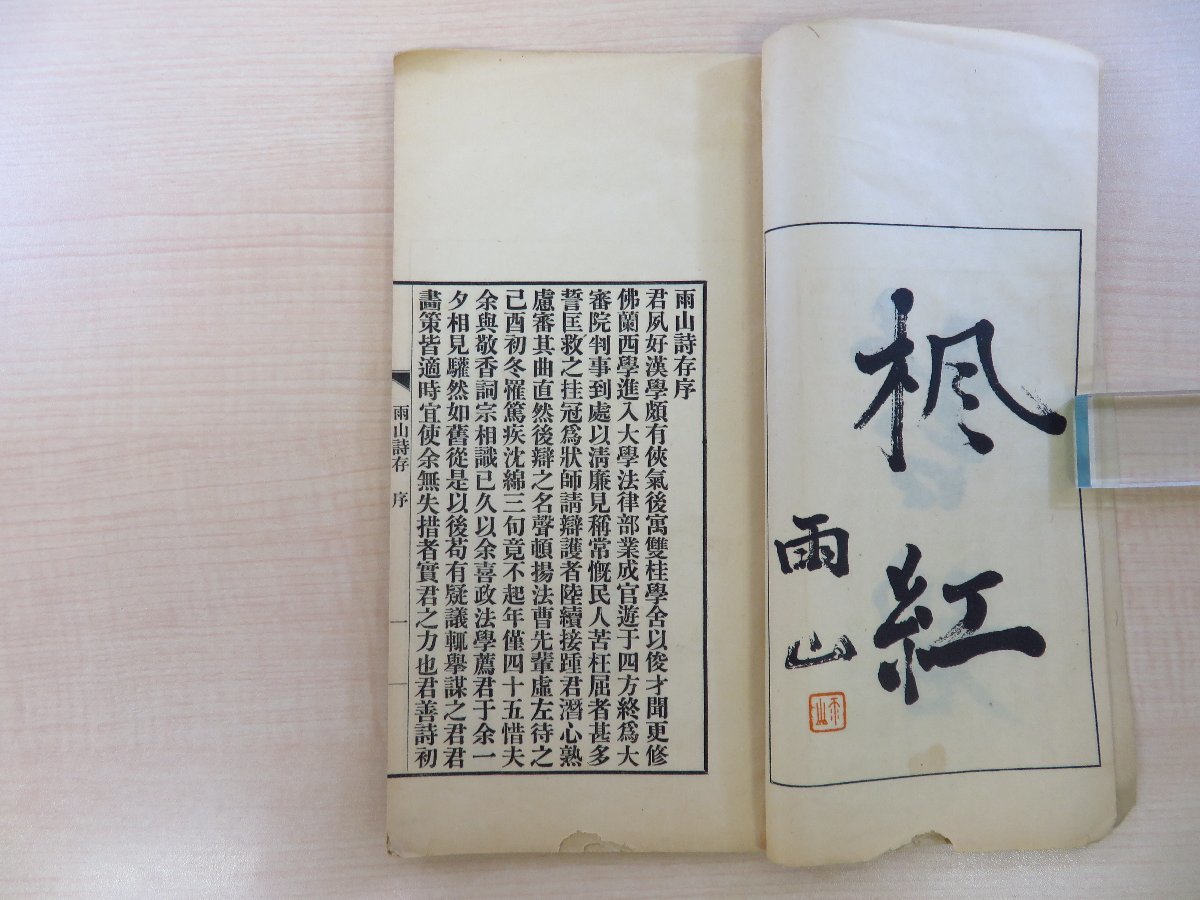 楓紅
雨山
雨山
雨山詩存序
君夙好漢學頗有俠氣後寓雙桂學舍以俊才聞更修
佛蘭西學進入大學法律部業成官遊于四方終爲大
審院判事到處以淸廉見稱常慨民人苦枉屈者甚多
誓匡救之挂冠爲狀師請辯護者陸續接踵君潛心熟
慮審其曲直然後辯之名聲頓揚法曹先輩虛左待之
己酉初冬罹篤疾沈綿三旬竟不起年僅四十五惜夫
余與敬香詞宗相識已久以余喜政法學薦君于余一
夕相見驩然如舊從是以後苟有疑議輒擧謀之君君
畫策皆適時宜使余無失措者實君之力也君善詩初
雨山詩存 序
一